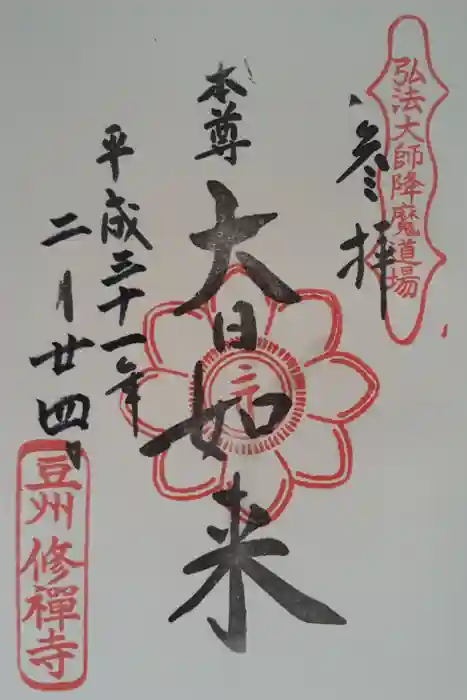 弘法大師降魔道場
参拝
本尊
大日如来
平成三十一年
二月廿四日
豆州修禪寺